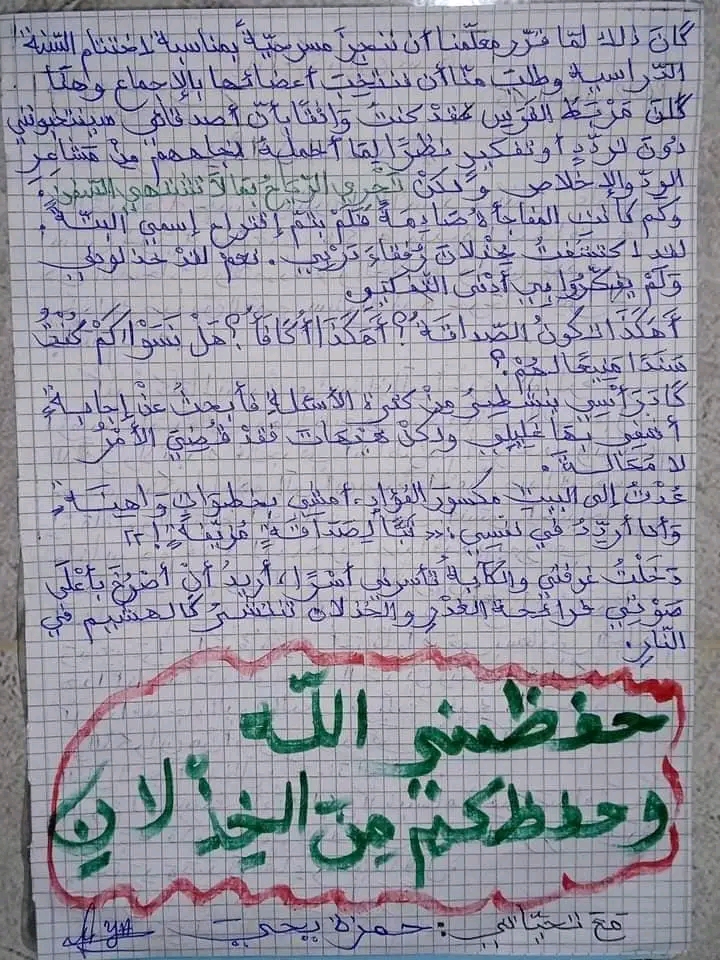 كَانَ ذلك لمّا قرّر معلّمنا أن ننجز مسرحيّة بمناسبة اختتام السّنة
الدّراسية وطلب منّا أن ننتخب أعضائها بالإجماع وهنا
كان مَرْبَط الفَرَس فقد كنتُ وَاثقًا بأنّ أصدقائي سينتخبونني
دون تردّدٍ أو تفكير نظرًا لِمَا أحمله اتجاههم مِنْ مَشاعِرَ
الودّ والإخلاص ولكنْ تَجْرِي الرّيَاحُ بِمَا لا تَشتهي السّفنُ:
وكم كانت المفاجأة صَادِمَةً فَلَمْ يتمّ إقتراح إسمي البتّة.
لقد اكتشفتُ خِذْلانَ رُفَقاء دَرْبي. نعم لقد خذلوني
وَلَمْ يفكّروا بي أدْنَى التّفكير
أهَكَذَا تكونُ الصّداقَةُ؟ أهَكَذَا أُكَافَأُ؟ هَلْ نَسَوْا كَمْ كُنْتُ
سَنَدًا مَنِيعًا لهُمْ؟
كَادَ رَأْسِي ينشطِرُ مِنْ كثرة الأسئلةِ فأبحثُ عَنْ إجابةٍ
أشفي بِهَا غليلي ولكنْ هَيْهَات فقد قُضِيَ الأمْرُ
لا مَحَالَةَ.
عُدْتُ إلى البيتِ مكسورَ الفُؤادِ، أمشي بخطواتٍ وَاهِنَةٍ،
وَأنا أردّدُ في نفسِي: «تَبًّا لِصَدَاقَةٍ مُزيّفةٍ!»
دَخَلْتُ غرفتي والكآبةُ تأسرني أسْرًا، أريدُ أنْ أصْرُخَ بأعْلَى
صَوْتِي فرائحة الغدْرِ والخذلان تنتشرُ كالهشيم في
النّار.
حفظني الله
وحفظكم مِنَ الخِذْلانِ
مَعَ تحيّاتي: حمزة يحيى